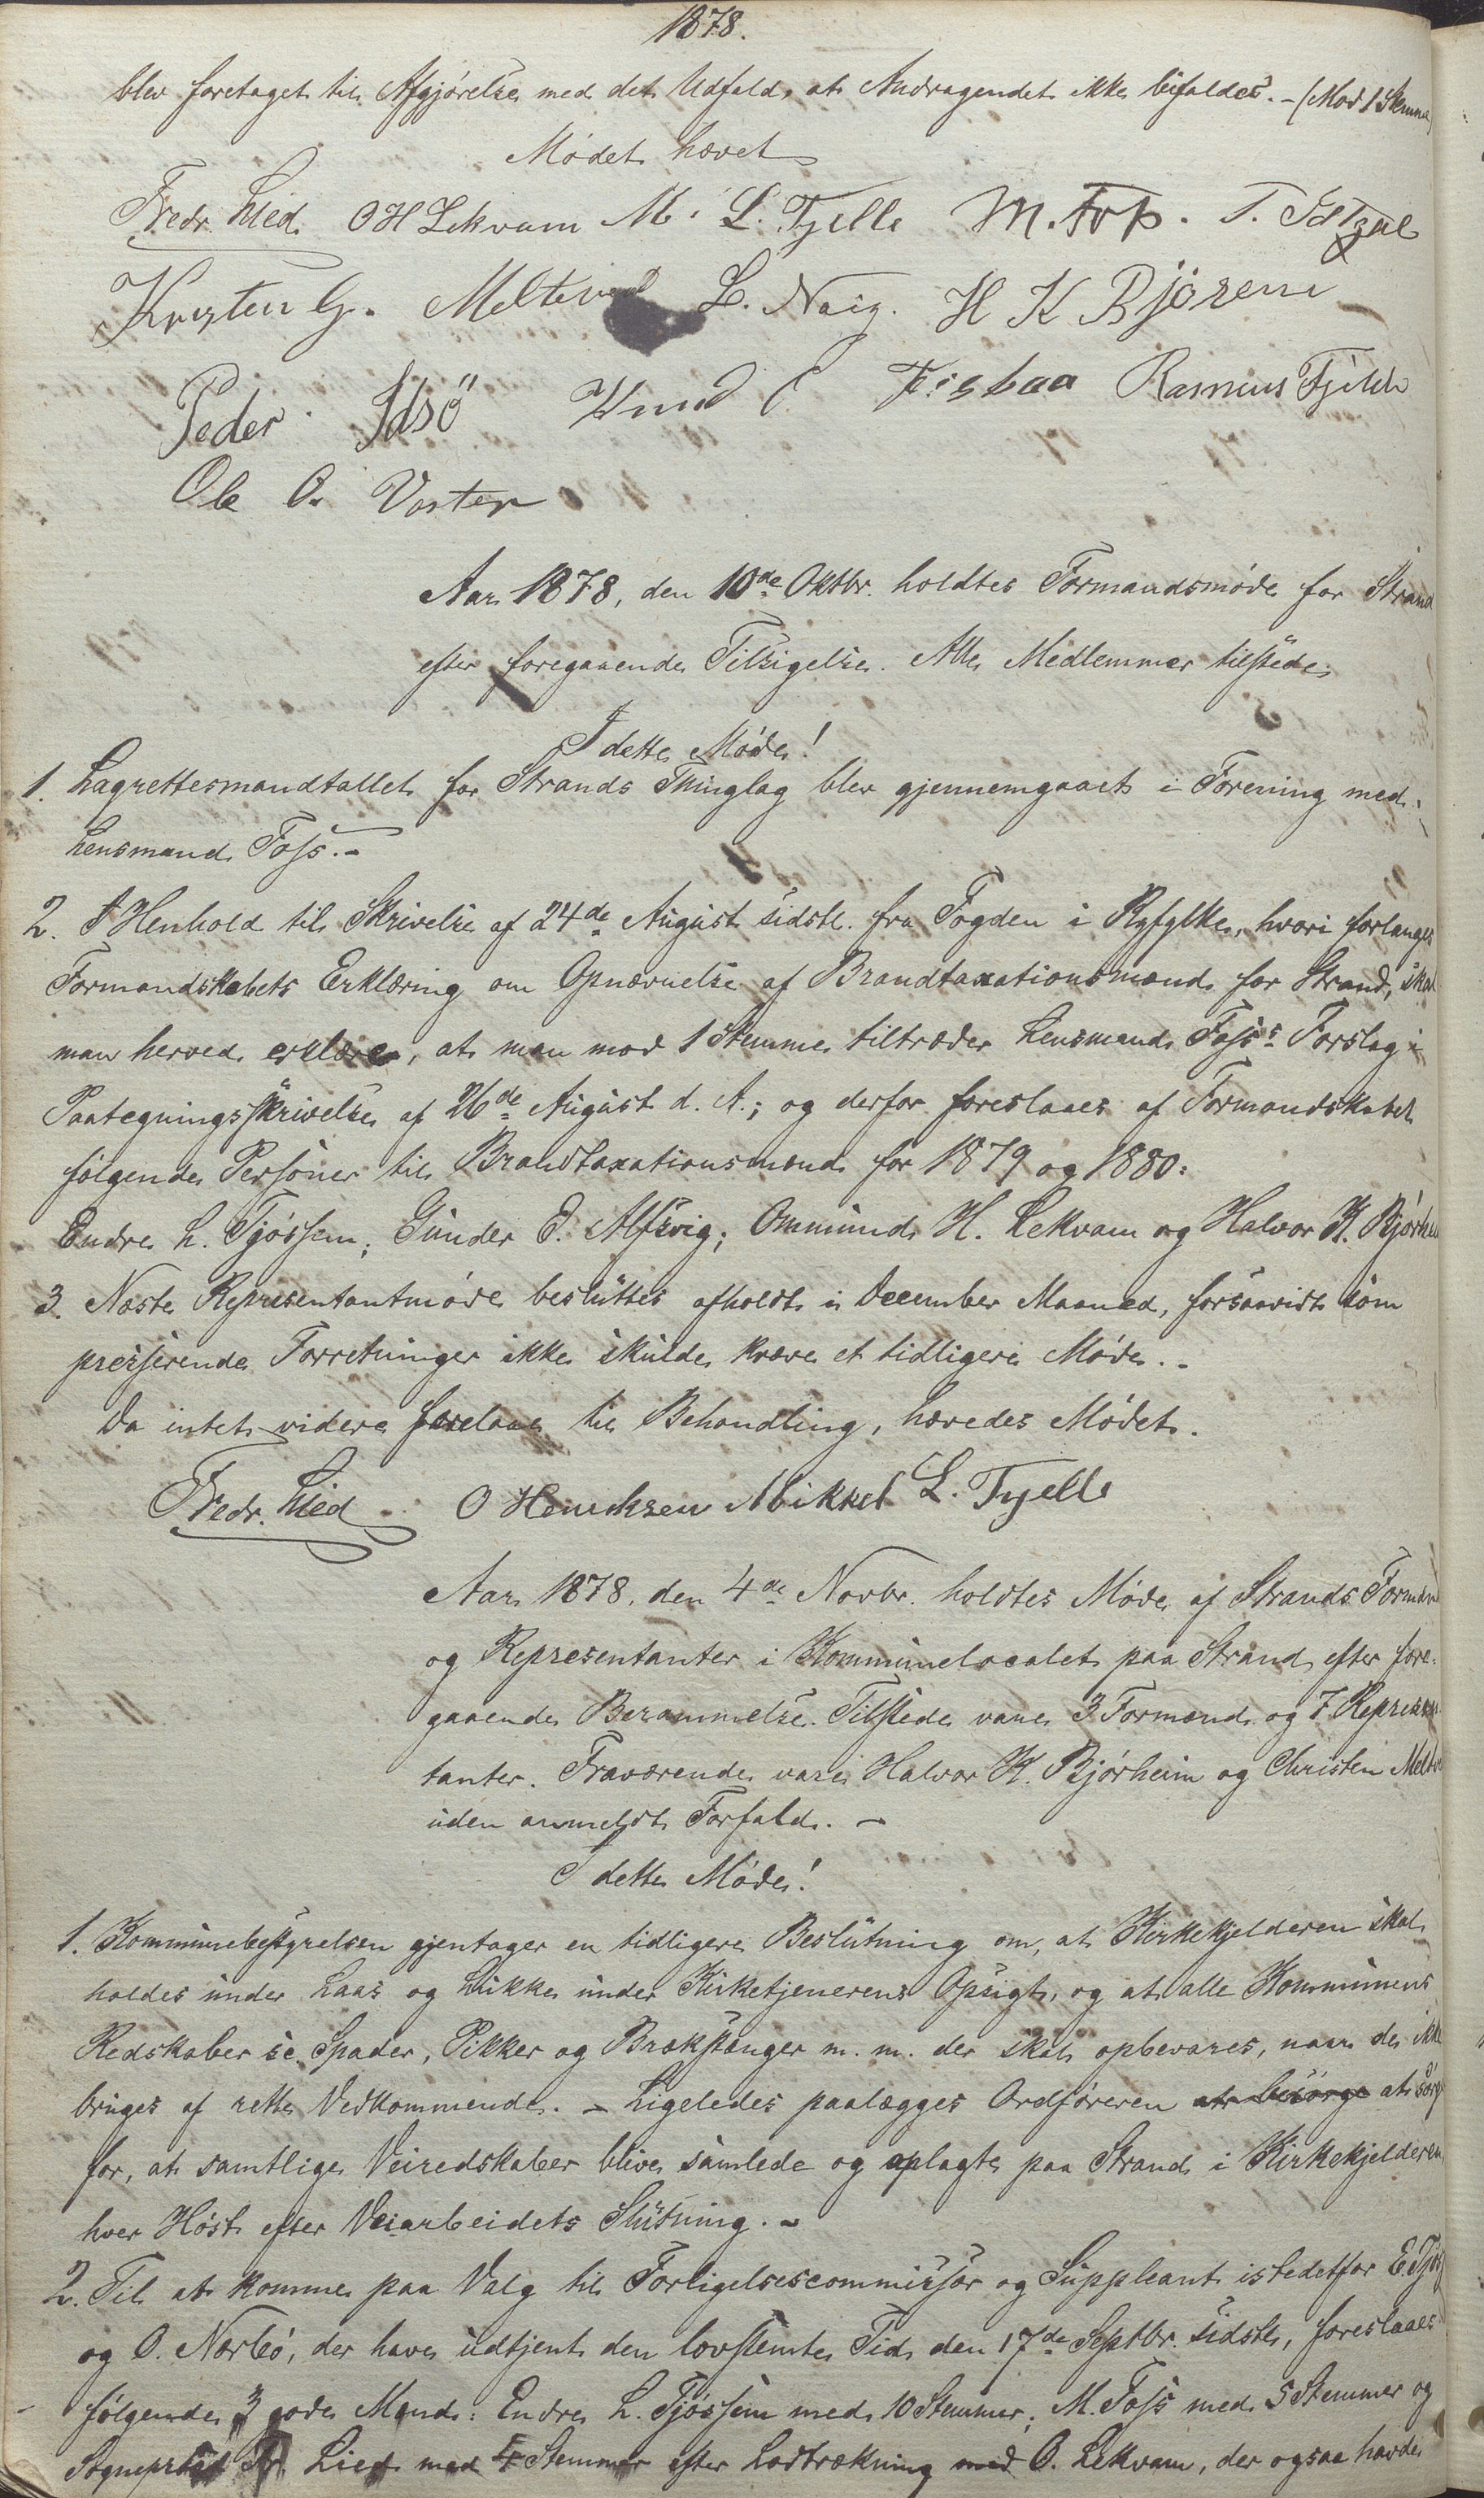 1878.
blev foretaget til Afgjørelse med det Udfald, at Andragendet ikke bifaldes. - (Mod 1 Stemme)
Mødet hævet
Fredr. Lied. O H Lekvam M. L. Tjelle M. Foss. T.
Kristen G. Melteved L. Naig. H K Bjøreim
Peder Idsö Knud E Fiskaa Rasmus Fjelde
Ole O. Voster
Aar 1878, den 10de Oktbr. holdtes Formandsmøde for Strand
efter foregaaende Tilsigelse. Alle Medlemmer tilstede
I dette Møde!
1. Lagrettesmandtallet for Strands Thinglag blev gjennemgaaet i Forening med
Lensmand Foss. -
2. I Henhold til Skrivelse af 24de August sidstl. fra Fogden i Ryfylke, hvori forlanges
Formandskabets Erklæring om Opnævnelse af Brandtaxationsmænd for Strand, skal
man herved erklære, at man mod 1 Stemme tiltræder Lensmand Foss's Forslag i
Paategningsskrivelse af 26de August d. A.; og derfor foreslaaes af Formandskabet
følgende Personer til Brandtaxationsmænd for 1879 og 1880:
Endre L. Tjøssem; Gunder E. Alfsvig; Ommund H. Lekvam og Halvor K. Bjørheim
3. Næste Representantmøde besluttes afholdt i December Maaned, forsaavidt som
presserende Forretninger ikke skulde kræve et tidligere Møde. -
Da intet videre forelaae til Behandling, hævedes Mødet.
Fredr. Lied O Henriksen Mikkel L. Tjelle
Aar 1878, den 4de Novbr. holdtes Møde af Strands Formænd
og Representanter i Kommunelocalet paa Strand efter fore-
gaaende Berammelse. Tilstede vare 3 Formænd og 7 Represen-
tanter. Fraværende vare Halvor K. Bjørheim og Christen Meltv
uden anmeldt Forfald. -
I dette Møde!
1. Kommunebestyrelsen gjentager en tidligere Beslutning om, at Kirkekjelderen skal
holdes under Laas og Lukke under Kirketjenerens Opsigt, og at alle Kommunens
Redskaber se Spader, Pikker og Brækstænger m. m. der skal opbevares, naar de ikke
bruges af rette Vedkommende. - Ligeledes paalægges Ordføreren at besørge at sørge
for, at samtlige Veiredskaber blive samlede og oplagte paa Strand i Kirkekjelderen
hver Høst efter Veiarbeidets Slutning. -
2. Til at komme paa Valg til Forligelsescommissær og Suppleant istedetfor E. Tjøs
og O. Nærbø, der have udtjent den lovstemte Tid den 17de Septbr. sidstl, foreslaaes
følgende 3 gode Mænd: Endre L. Tjøssem med 10 Stemmer; M. Foss med 5 Stemmer og
Sogneprest Fr. Lied med 4 Stemmer efter Lodtrækning med O. Lekvam, der ogsaa havde